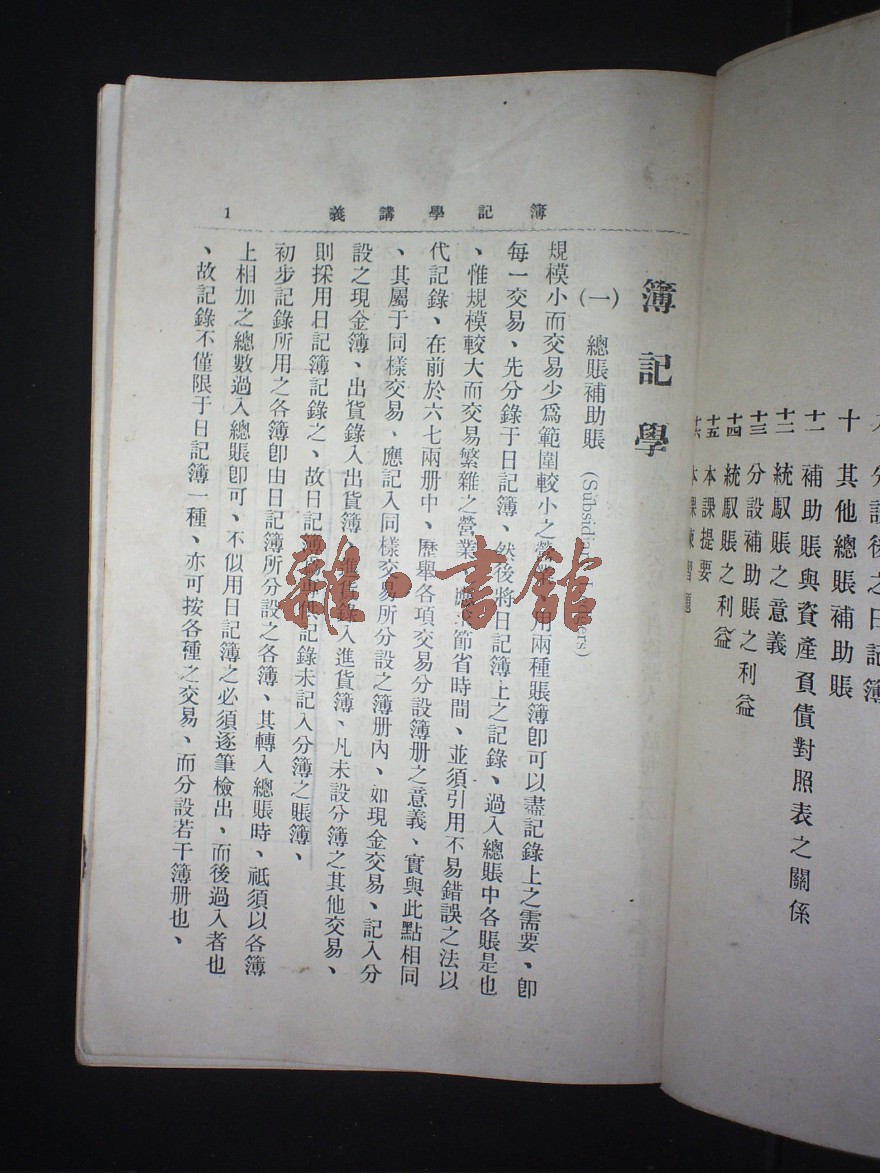 十 其他總賬補助賬
十一 補助賬與資產負債對照表之關係
十二 統馭賬之意義
十三 分設補助賬之利益
十四 統馭賬之利益
十五 本課提要
簿記學講義
1
簿記學
(一) 總賬補助賬
規模小而交易少爲範圍較小之營業用兩種賬簿卽可以盡記錄上之需要、卽
每一交易、先分錄于日記簿、然後將日記簿上之記錄、過入總賬中各賬是也
、惟規模較大而交易繁雜之營業節省時間、並須引用不易錯誤之法以
代記錄、在前於六七兩册中、歷舉各項交易分設簿册之意義、實與此點相同
、其屬于同樣交易、應記入同樣交易所分設之簿册內、如現金交易、記入分
設之現金簿、出貨錄入出貨簿、進貨錄入進貨簿、凡未設分簿之其他交易、
則採用日記簿記錄之、故日記簿記錄未記入分簿之賬簿、
初步記錄所用之各簿卽由日記簿所分設之各簿、其轉入總賬時、祇須以各簿
上相加之總數過入總賬卽可、不似用日記簿之必須逐筆檢出、而後過入者也
、故記錄不僅限于日記簿一種、亦可按各種之交易、而分設若干簿册也、
雜·書館